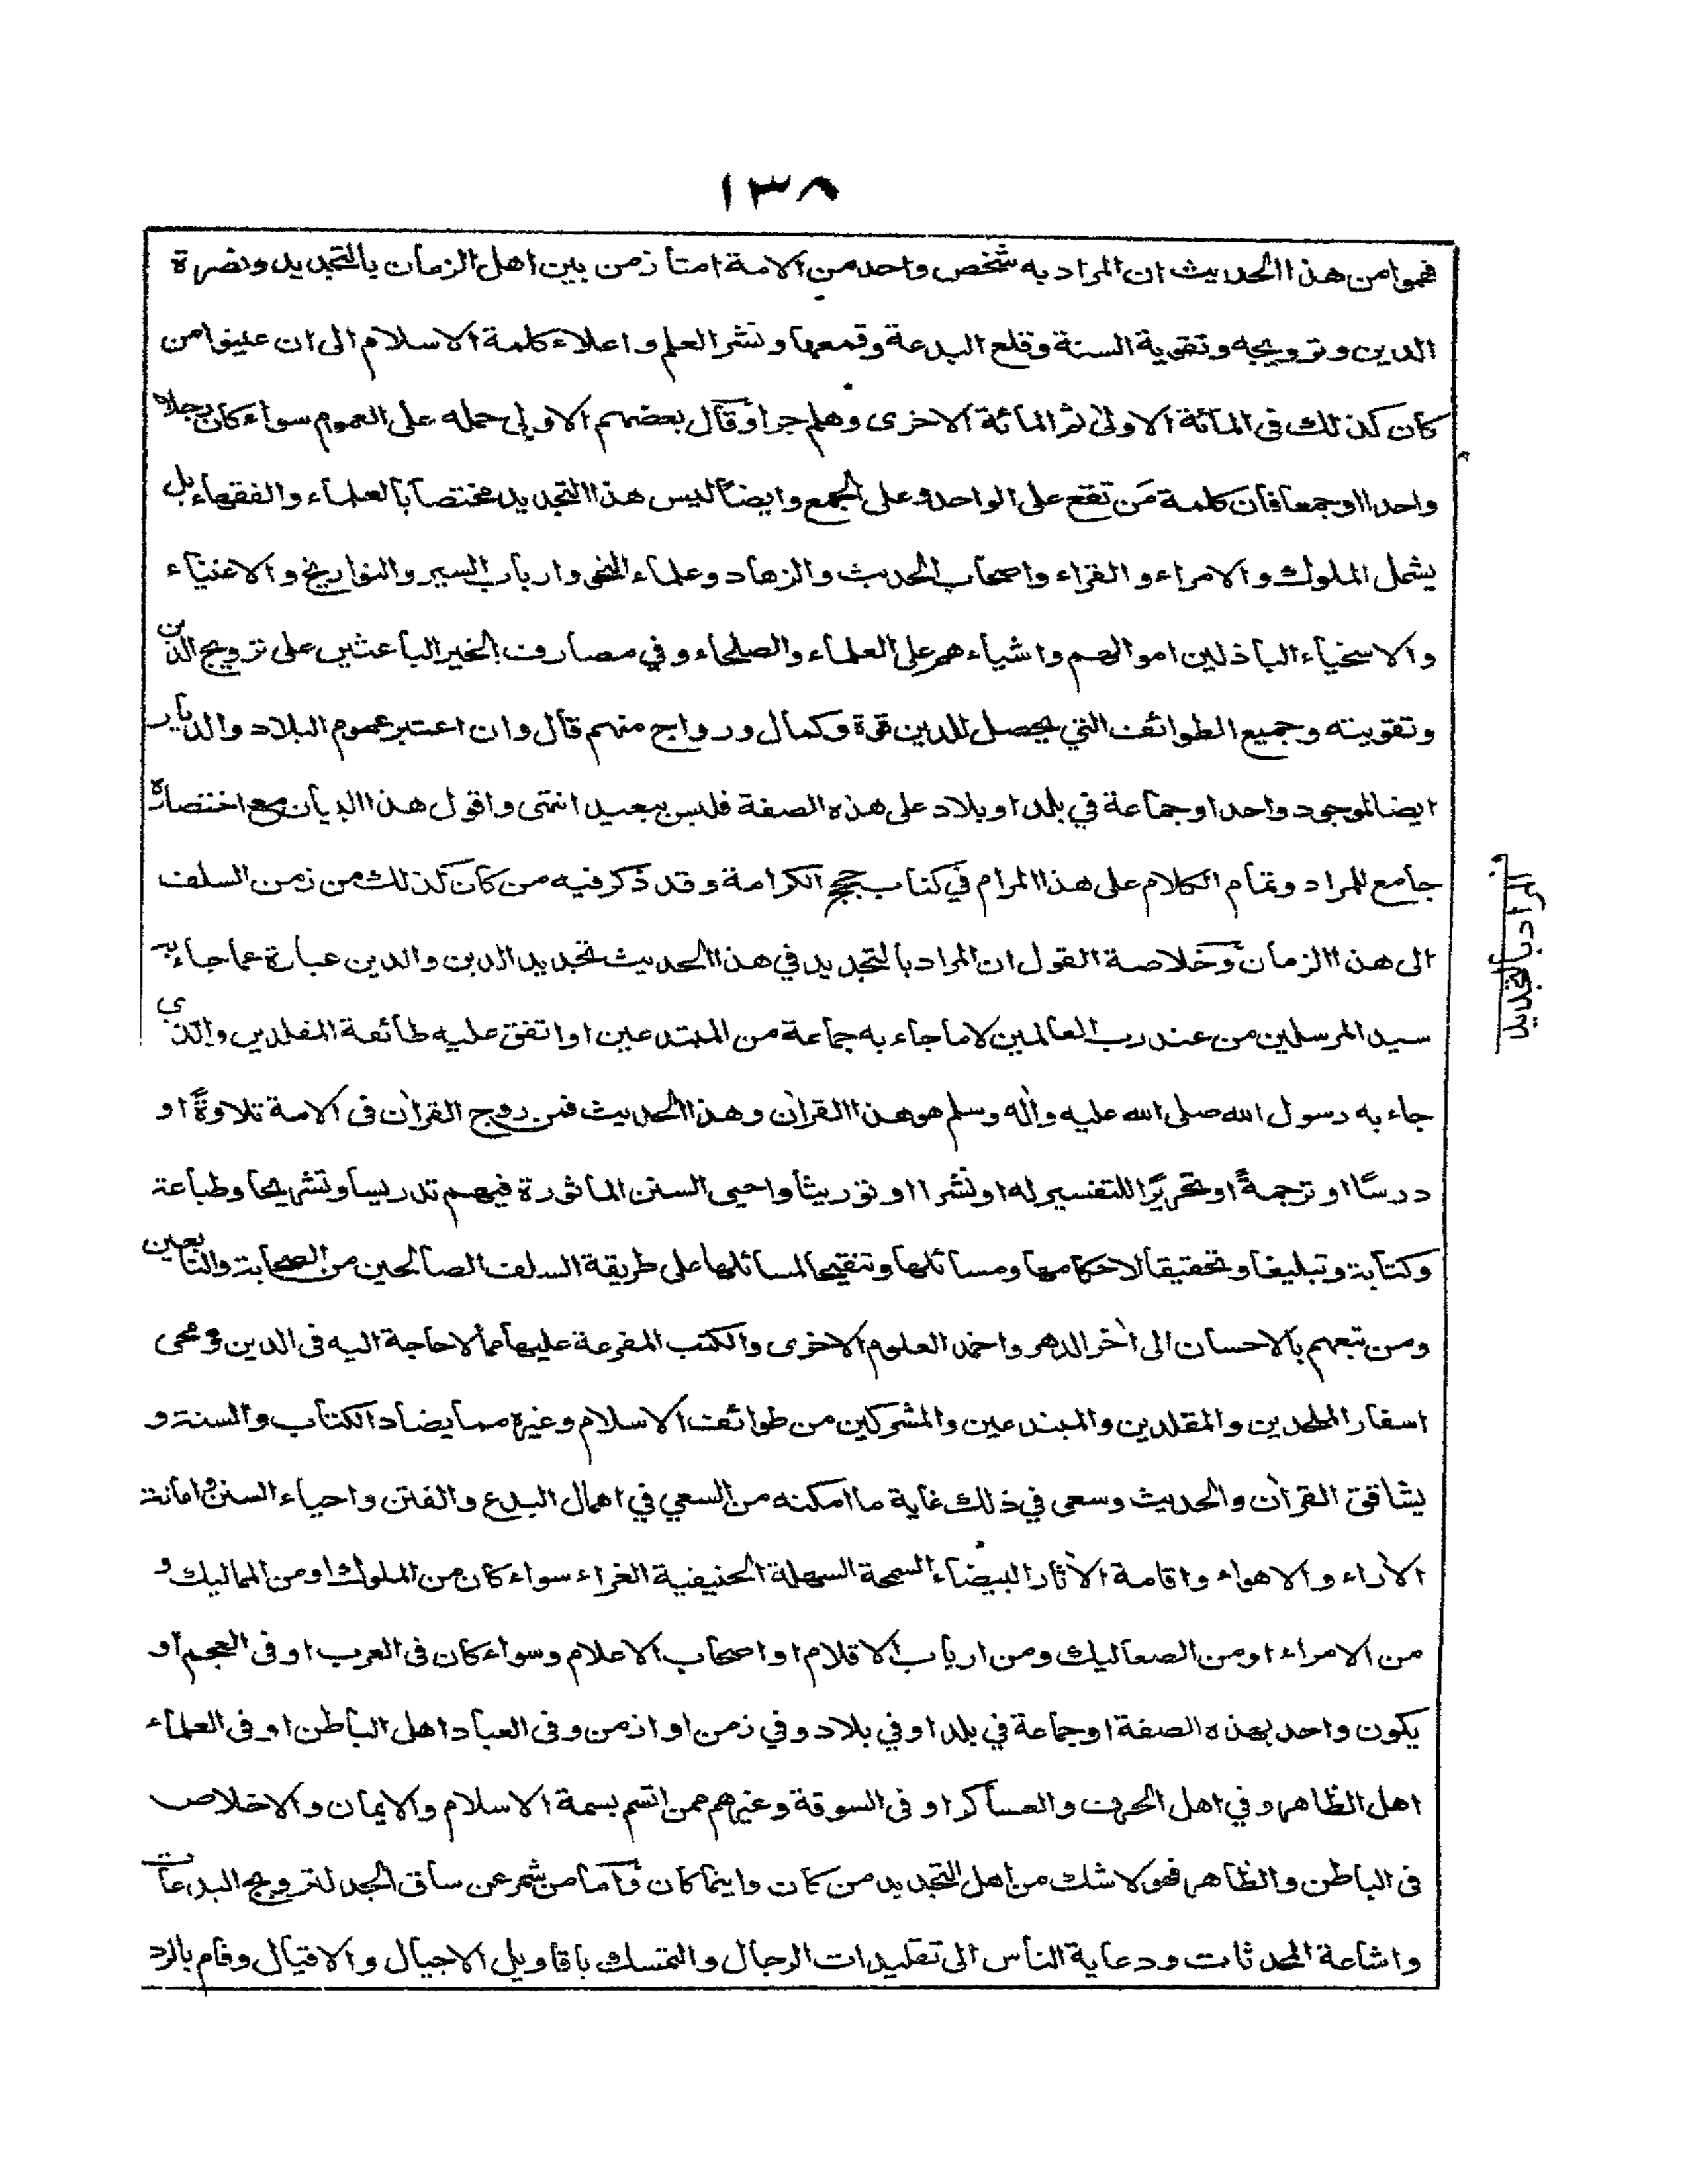 ١٣٨
فهموا من هذا الحديث ان المراد به شخص واحد من الامة امتاز من بين اهل الزمان بالتجديد ونصرة
الدين وترويجه وتقوية السنة وقلع البدعة وقمعها ونشر العلم واعلاء كلمة الاسلام الى ان عينوا من
كان كذلك فى المائة الاولى ثم المائة الاخرى وهلم جرا وقال بعضهم الاولى حمله على العموم سواء كان رجلا
واحدا او جمعا فان كلمة مَن تقع على الواحد وعلى الجمع وايضا ليس هذا التجديد مختصا بالعلماء والفقهاء بل
يشمل الملوك والامراء والقراء واصحاب الحديث والزهاد وعلماء النحو وارباب السير والتواريخ والاغنياء
والاسخياء الباذلين اموالهم واشياءهم على العلماء والصلحاء وفي مصارف الخير الباعثين على ترويج الدين
وتقويته وجميع الطوائف التي يحصل للدين قوة وكمال ورواج منهم قال وان اعتبر عموم البلاد والديار
ايضا لموجود واحد او جماعة في بلد او بلاد على هذه الصفة فليس ببعيد انتهى واقول هذا البيان مع اختصاره
جامع للمراد وتمام الكلام على هذا المرام في كتاب حجج الكرامة وقد ذكر فيه من كان كذلك من زمن السلف
الى هذا الزمان وخلاصة القول ان المراد بالتجديد في هذا الحديث تجديد الدين والدين عبارة عما جاء به
سيد المرسلين من عند رب العالمين لا ما جاء به جماعة من المبتدعين او اتفق عليه طائفة المقلدين والذي
جاء به رسول الله صلى الله عليه واٰله وسلم هو هذا القراٰن وهذا الحديث فمن روج القراٰن فى الامة تلاوةً او
درسًا او ترجمةً او تحريرًا للتفسير له او نشرا او توريثا واحيى السنن الماثورة فيهم تدريسا وتشريحا وطباعة
وكتابة وتبليغا وتحقيقا لاحكامها ومسائلها وتنقيحا لمسائلها على طريقة السلف الصالحين من الصحابة والتابعين
ومن تبعهم بالاحسان الى اٰخر الدهر واخمد العلوم الاخرى والكتب المفرعة عليها مما لا حاجة اليه فى الدين ومحى
اسفار الملحدين والمقلدين والمبتدعين والمشركين من طوائف الاسلام وغيره مما يضاد الكتاب والسنة و
يشاقق القراٰن والحديث وسعى في ذلك غاية ما امكنه من السعي في اهمال البدع والفتن واحياء السنن واماتة
الاٰراء والاهواء واقامة الاٰثار البيضاء السمحة السهلة الحنيفية الغراء سواء كان من الملوك او من المماليك و
من الامراء او من الصعاليك ومن ارباب الاقلام او اصحاب الاعلام وسواء كان فى العرب او فى العجم او
يكون واحد بهذه الصفة او جماعة في بلد او في بلاد و في زمن او ازمن و فى العباد اهل الباطن او فى العلماء
اهل الظاهر و في اهل الحرف والعساكر او فى السوقة وغيرهم ممن اتسم بسمة الاسلام والايمان والاخلاص
فى الباطن والظاهر فهو لا شك من اهل التجديد من كان واينما كان واما من شمر عن ساق الجد لترويج البدعات
واشاعة المحدثات ودعاية الناس الى تقليدات الرجال والتمسك باقاويل الاجيال والاقيال وقام بالرد